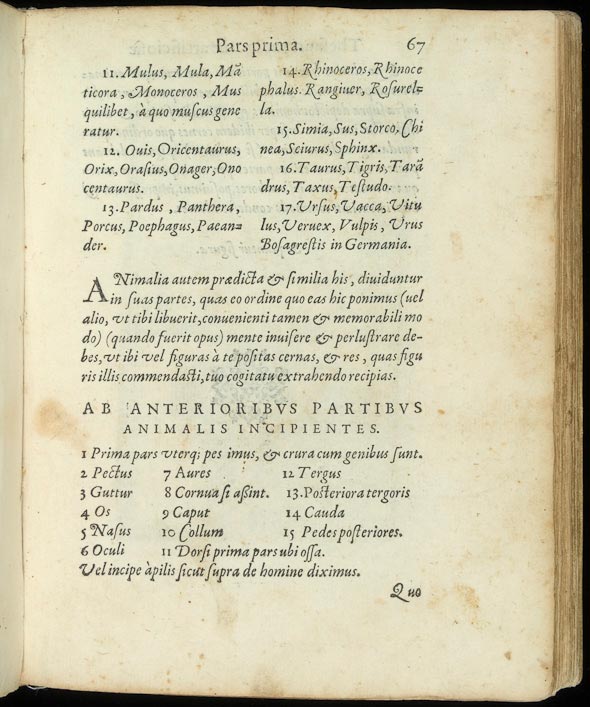 Pars prima. 67
11. Mulus, Mula, Mã
ticora, Monoceros, Mus
quilibet, à quo muscus gene
ratur.
12. Ouis, Oricentaurus,
Orix, Orasius, Onager, Ono
centaurus.
13. Pardus, Panthera,
Porcus, Poephagus, Paean-
der.
14. Rhinoceros, Rhinoce
phalus. Rangiuer, Rosurel-
la.
15. Simia, Sus, Storco, Chi
nea, Sciurus, Sphinx.
16. Taurus, Tigris, Tarã
drus, Taxus, Testudo.
17. Vrsus, Vacca, Vitu
lus, Veruex, Vulpis, Vrus
Bosagrestis in Germania.
ANimalia autem prædicta & similia his, diuiduntur
in suas partes, quas eo ordine quo eas hic ponimus (uel
alio, vt tibi libuerit, conuenienti tamen & memorabili mo
do) (quando fuerit opus) mente inuisere & perlustrare de-
bes, vt ibi vel figuras à te positas cernas, & res, quas figu
ris illis commendasti, tuo cogitatu extrahendo recipias.
AB ANTERIORIBVS PARTIBVS
ANIMALIS INCIPIENTES.
1 Prima pars vterq; pes imus, & crura cum genibus sunt.
2 Pectus 7 Aures 12 Tergus
3 Guttur 8 Cornua si aßint. 13. Posteriora tergoris
4 Os 9 Caput 14 Cauda
5 Nasus 10 Collum 15 Pedes posteriores.
6 Oculi 11 Dorsi prima pars ubi ossa.
Vel incipe àpilis sicut supra de homine diximus.
Quo